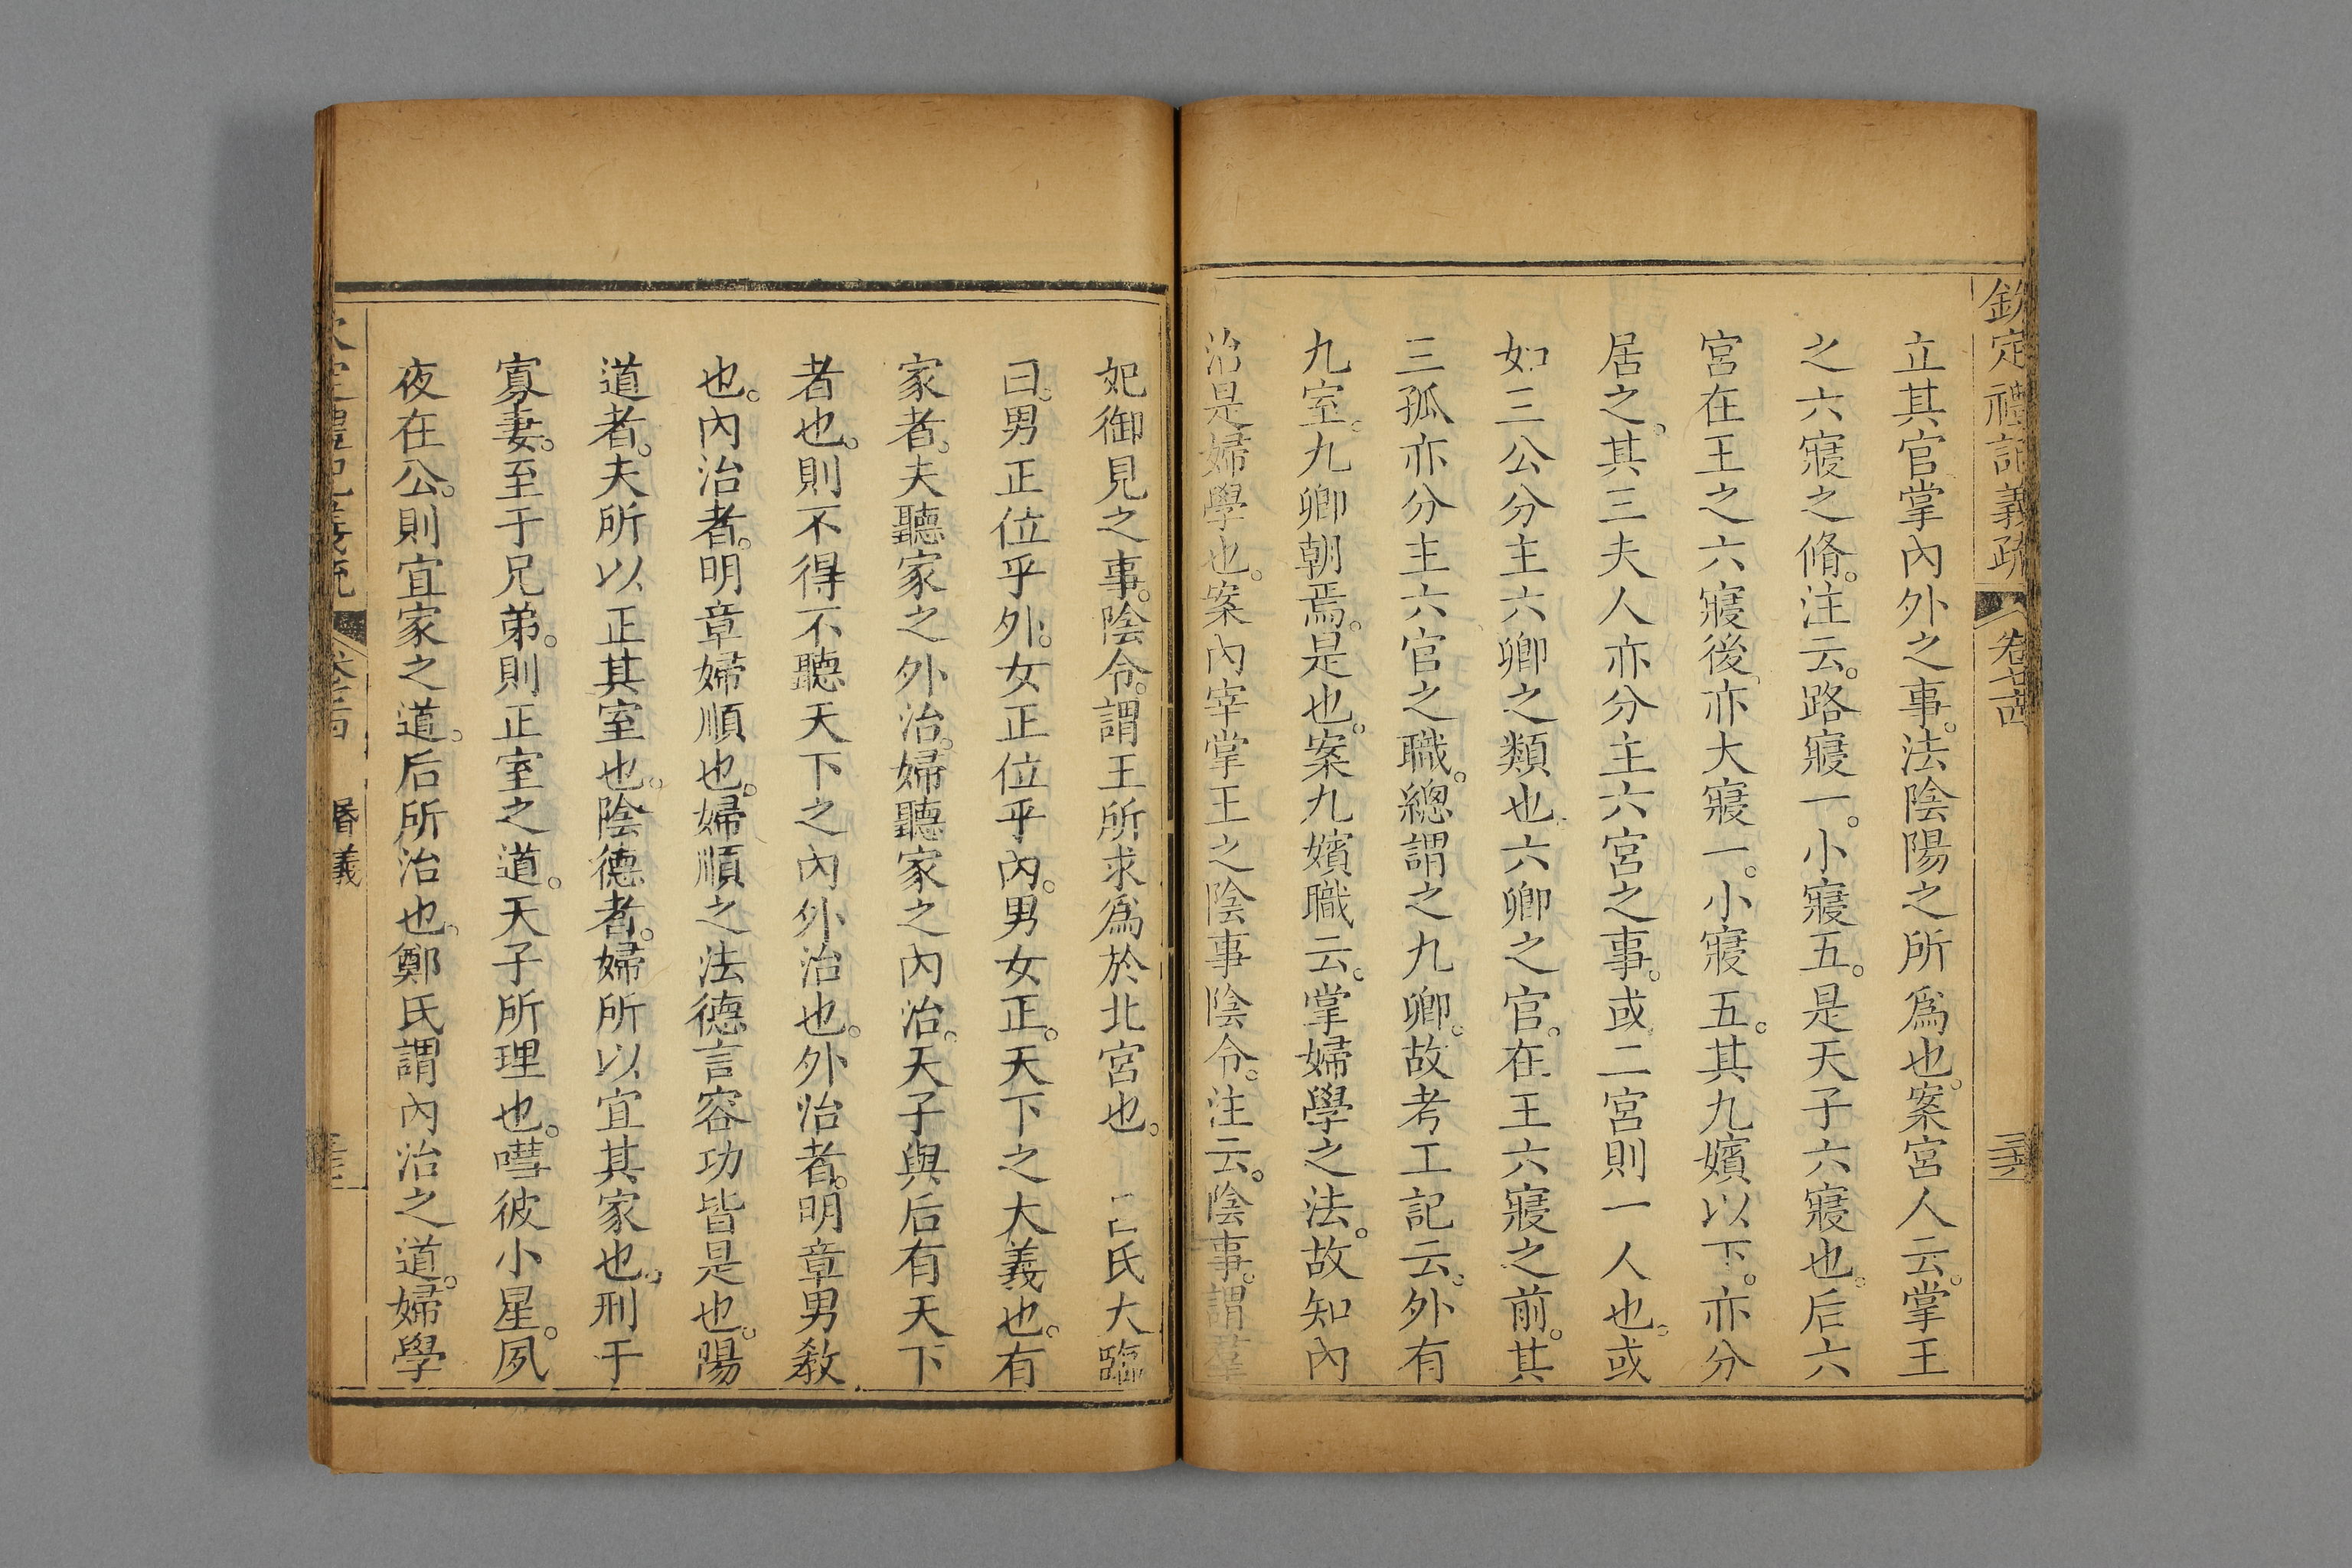 欽定禮記義疏 卷七十四
立其官掌內外之事。法陰陽之所爲也。案宮人云。掌王
之六寢之脩。注云。路寢一。小寢五。是天子六寢也。后六
宮在王之六寢後、亦大寢一。小寢五。其九嬪以下。亦分
居之。其三夫人亦分主六宮之事。或二宮則一人也。或
如三公分主六卿之類也。六卿之官。在王六寢之前。其
三孤亦分主六官之職。總謂之九卿。故考工記云。外有
九室。九卿朝焉。是也。案九嬪職云。掌婦學之法。故知內
治是婦學也。案內宰掌王之陰事陰令。注云。陰事。謂羣
妃御見之事。陰令。謂王所求爲於北宮也。 氏大臨
曰。男正位乎外。女正位乎內。男女正。天下之大義也。有
家者。夫聽家之外治。婦聽家之內治。天子與后有天下
者也。則不得不聽天下之內外治也。外治者。明章男敎
也。內治者。明章婦順也。婦順之法德言容功皆是也。陽
道者。夫所以正其室也。陰德者。婦所以宜其家也。刑于
寡妻。至于兄弟。則正室之道。天子所理也。嘒彼小星。夙
夜在公。則宜家之道。后所治也。鄭氏謂內治之道。婦學
定禮記義疏 昬義